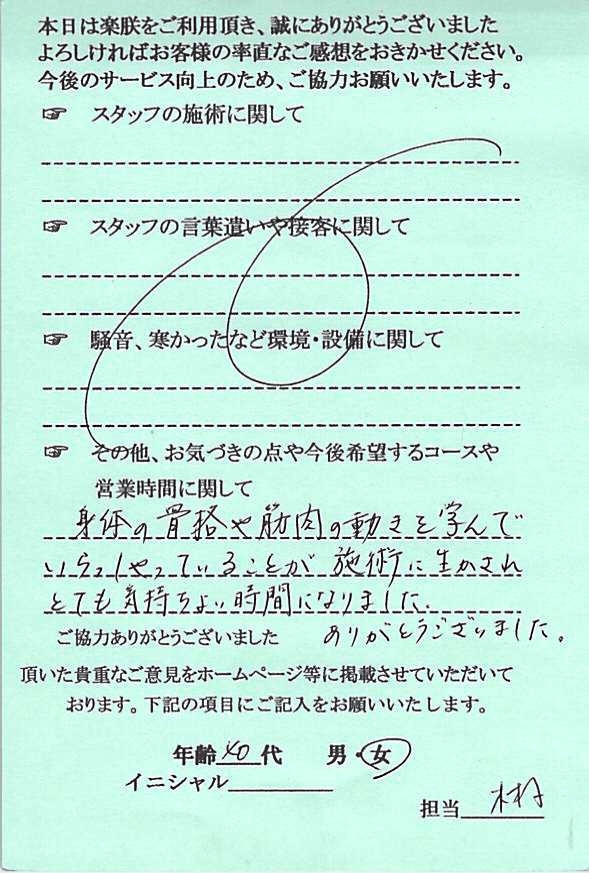 本日は楽朕をご利用頂き、誠にありがとうございました
よろしければお客様の率直なご感想をおきかせください。
今後のサービス向上のため、ご協力お願いいたします。
☞ スタッフの施術に関して
☞ スタッフの言葉遣いや接客に関して
☞ 騒音、寒かったなど環境・設備に関して
☞ その他、お気づきの点や今後希望するコースや
営業時間に関して
身体の骨格や筋肉の動きを学んで
いらっしゃっていることが施術に生かされ
とても気持ちよい時間になりました.
ご協力ありがとうございました ありがとうございました。
頂いた貴重なご意見をホームページ等に掲載させていただいて
おります。下記の項目にご記入をお願いいたします。
年齢40代 男・女
イニシャル
担当